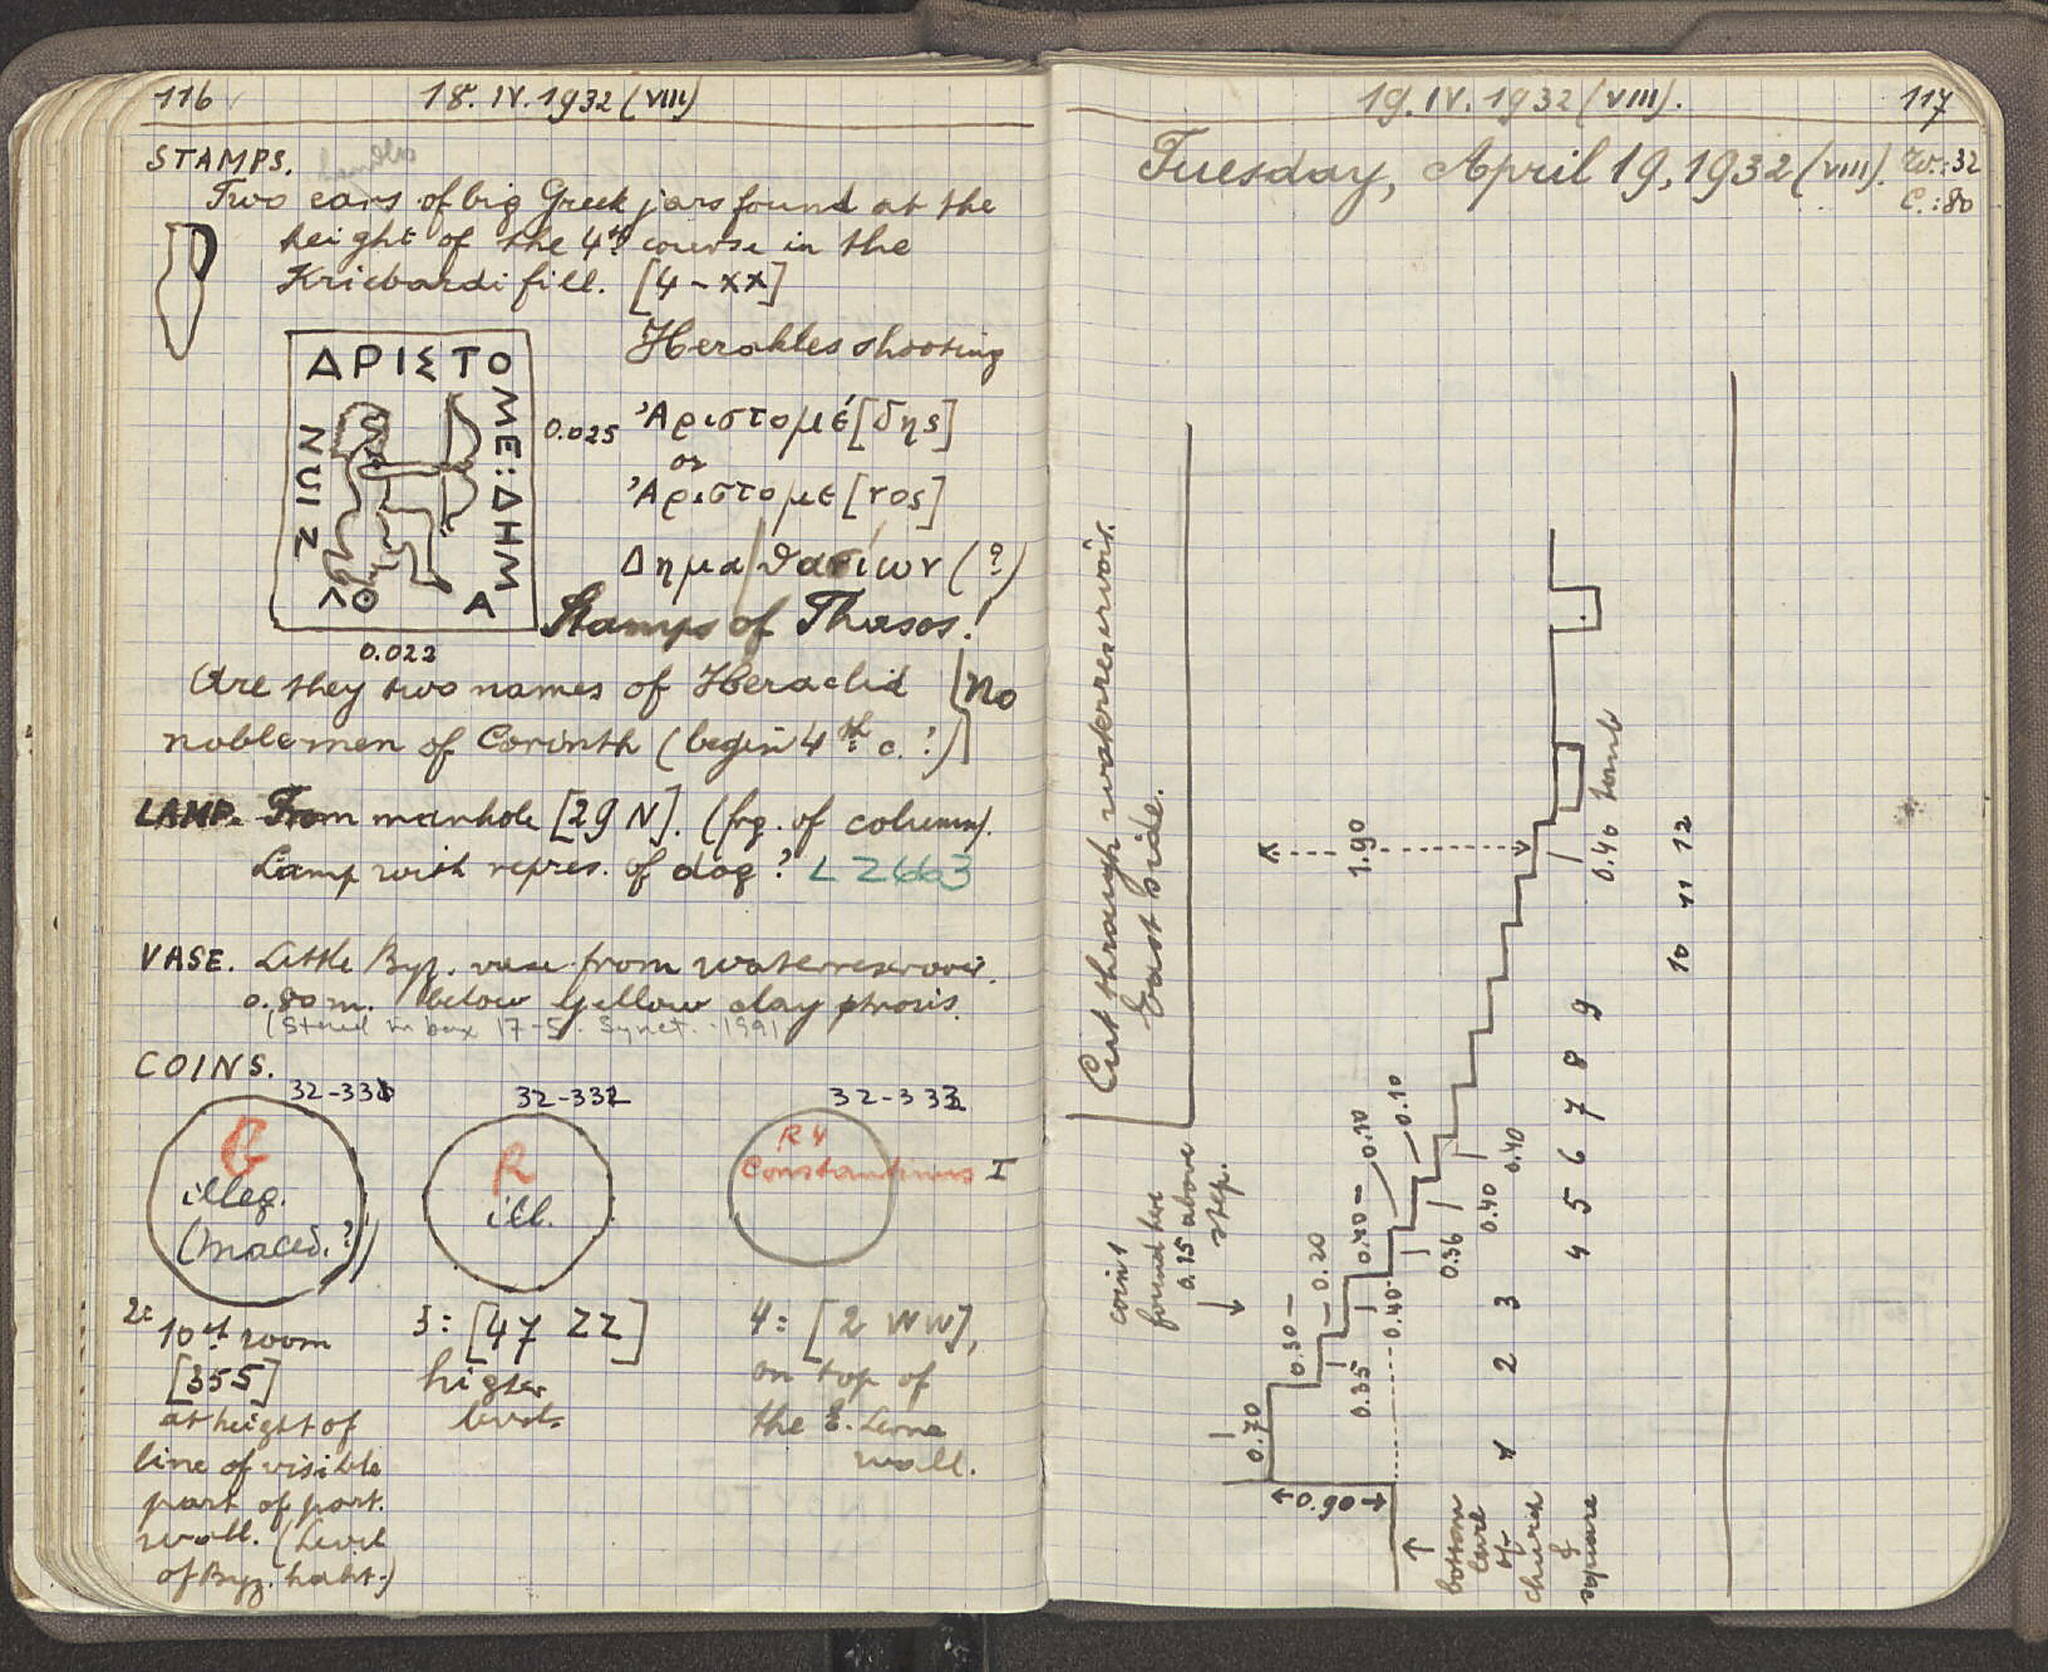 116
18.IV.1932 (VIII)
STAMPS.
handles
Two ears of big Greek jars found at the
height of the 4th course in the
fill. [4-XX]
Herakles shooting
ΑΡΙΣΤΟ
ΜΕ:ΔΗΜ
Α
0.025
0.022
Ἀριστομέ[δης]
or
Ἀριστομε[νος]
Δημα/θασίων (?)
Stamps of Thasos!
Are they two names of Heraclid
noblemen of Corinth (begin 4th c.?)
No
LAMP. From manhole [29 N]. (frg. of column).
Lamp with repres. of dog? L 2663
VASE. Little Byz. vase from waterreservoir.
0.80 m. below yellow clay
(Stored in box 17-5. 1991)
COINS.
32-331
32-332
32-333
illeg.
(Maced.?)
R
ill.
R 4
Constantinus I
2:
10th room
[355]
at height of
line of visible
part of part.
wall. (Level
of Byz. habt.)
3: [47 ZZ]
higher
levels
4: [2 WW],
on top of
the
wall.
19.IV.1932 (VIII).
117
Tuesday, April 19, 1932 (VIII).
W.: 32
C.: 80
Cut through waterreservoir.
East side.
coin 1
found here
0.15 above
step.
1.90
0.46 tomb
0.70
0.30
0.20
0.35
0.40
0.40
0.10
0.10
0.36
0.40
0.40
0.90
1 2 3 4 5 6 7 8 9 10 11 12
bottom
level
of
church
&
square